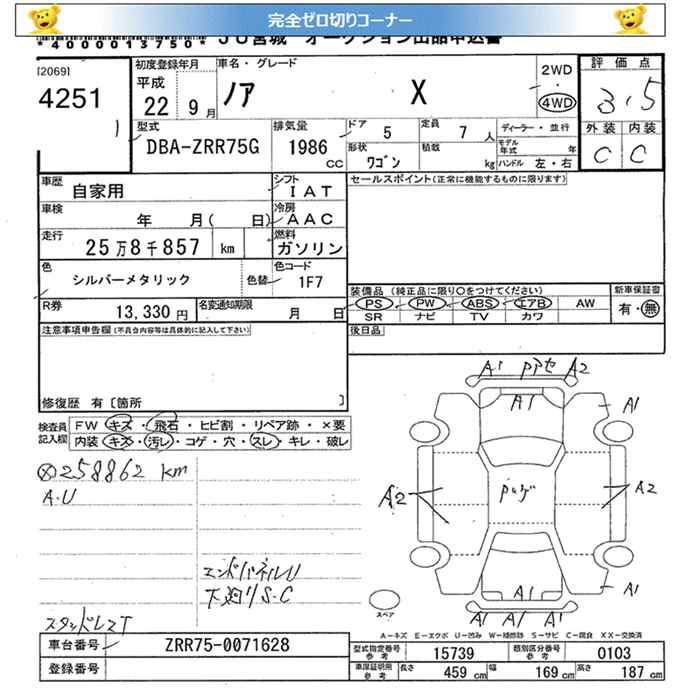 完全ゼロ切りコーナー
*4000013750* JU宮城 オークション出品申込書
[2069]
4251
初度登録年月
平成
22 9月
車名・グレード
ノア X
2WD
4WD
評価点
3.5
外装 内装
C C
型式
DBA-ZRR75G
排気量
1986 cc
ドア 5
定員 7 人
形状 ワゴン
積載 kg
ディーラー・並行
モデル年式 年
ハンドル 左・右
車歴 自家用
シフト IAT
車検 年 月( 日)
冷房 AAC
走行 25万8千857 km
燃料 ガソリン
色 シルバーメタリック
色替
色コード 1F7
R券 13,330円
名変通知期限 月 日
セールスポイント(正常に機能するものに限ります)
装備品(純正品に限り○をつけてください)
新車保証書
PS PW ABS エアB AW
SR ナビ TV カワ
有・無
注意事項申告欄(不具合内容等は具体的に記入して下さい)
後日品
修復歴 有〔箇所 〕
検査員記入欄
FW キズ・飛石・ヒビ割・リペア跡・×要
内装 キズ・汚レ・コゲ・穴・スレ・キレ・破レ
258862 km
A.U
エンドパネルU
下廻りS.C
スタッドレスT
A1 A2
A1 A1
A2 A2
A1 A1
A1 A1 A1
スペア
A-キズ E-エクボ U-凹み W-補修跡 S-サビ C-腐食 XX-交換済
車台番号 ZRR75-0071628
登録番号
型式指定番号 参考 15739
類別区分番号 参考 0103
車庫証明用 参考 長さ 459cm 幅 169cm 高さ 187cm